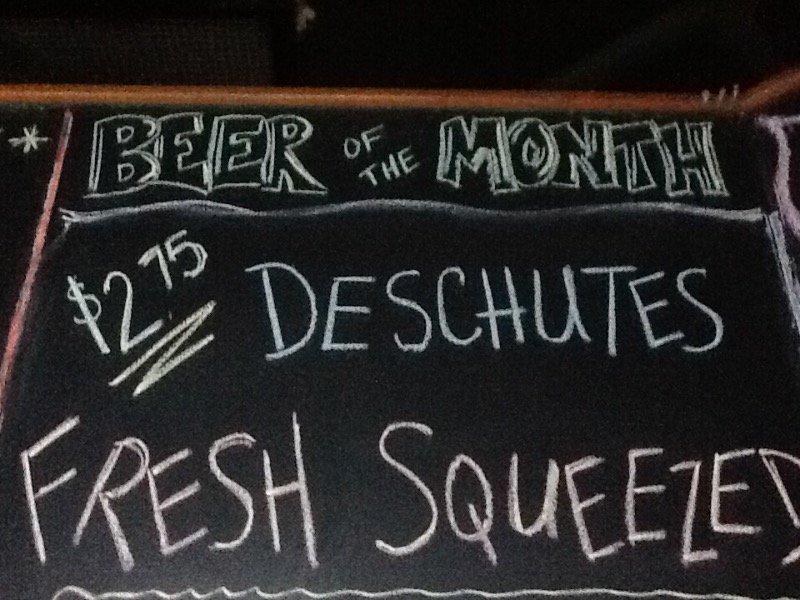 BEER OF THE MONTH
$2.75 DESCHUTES
FRESH SQUEEZED